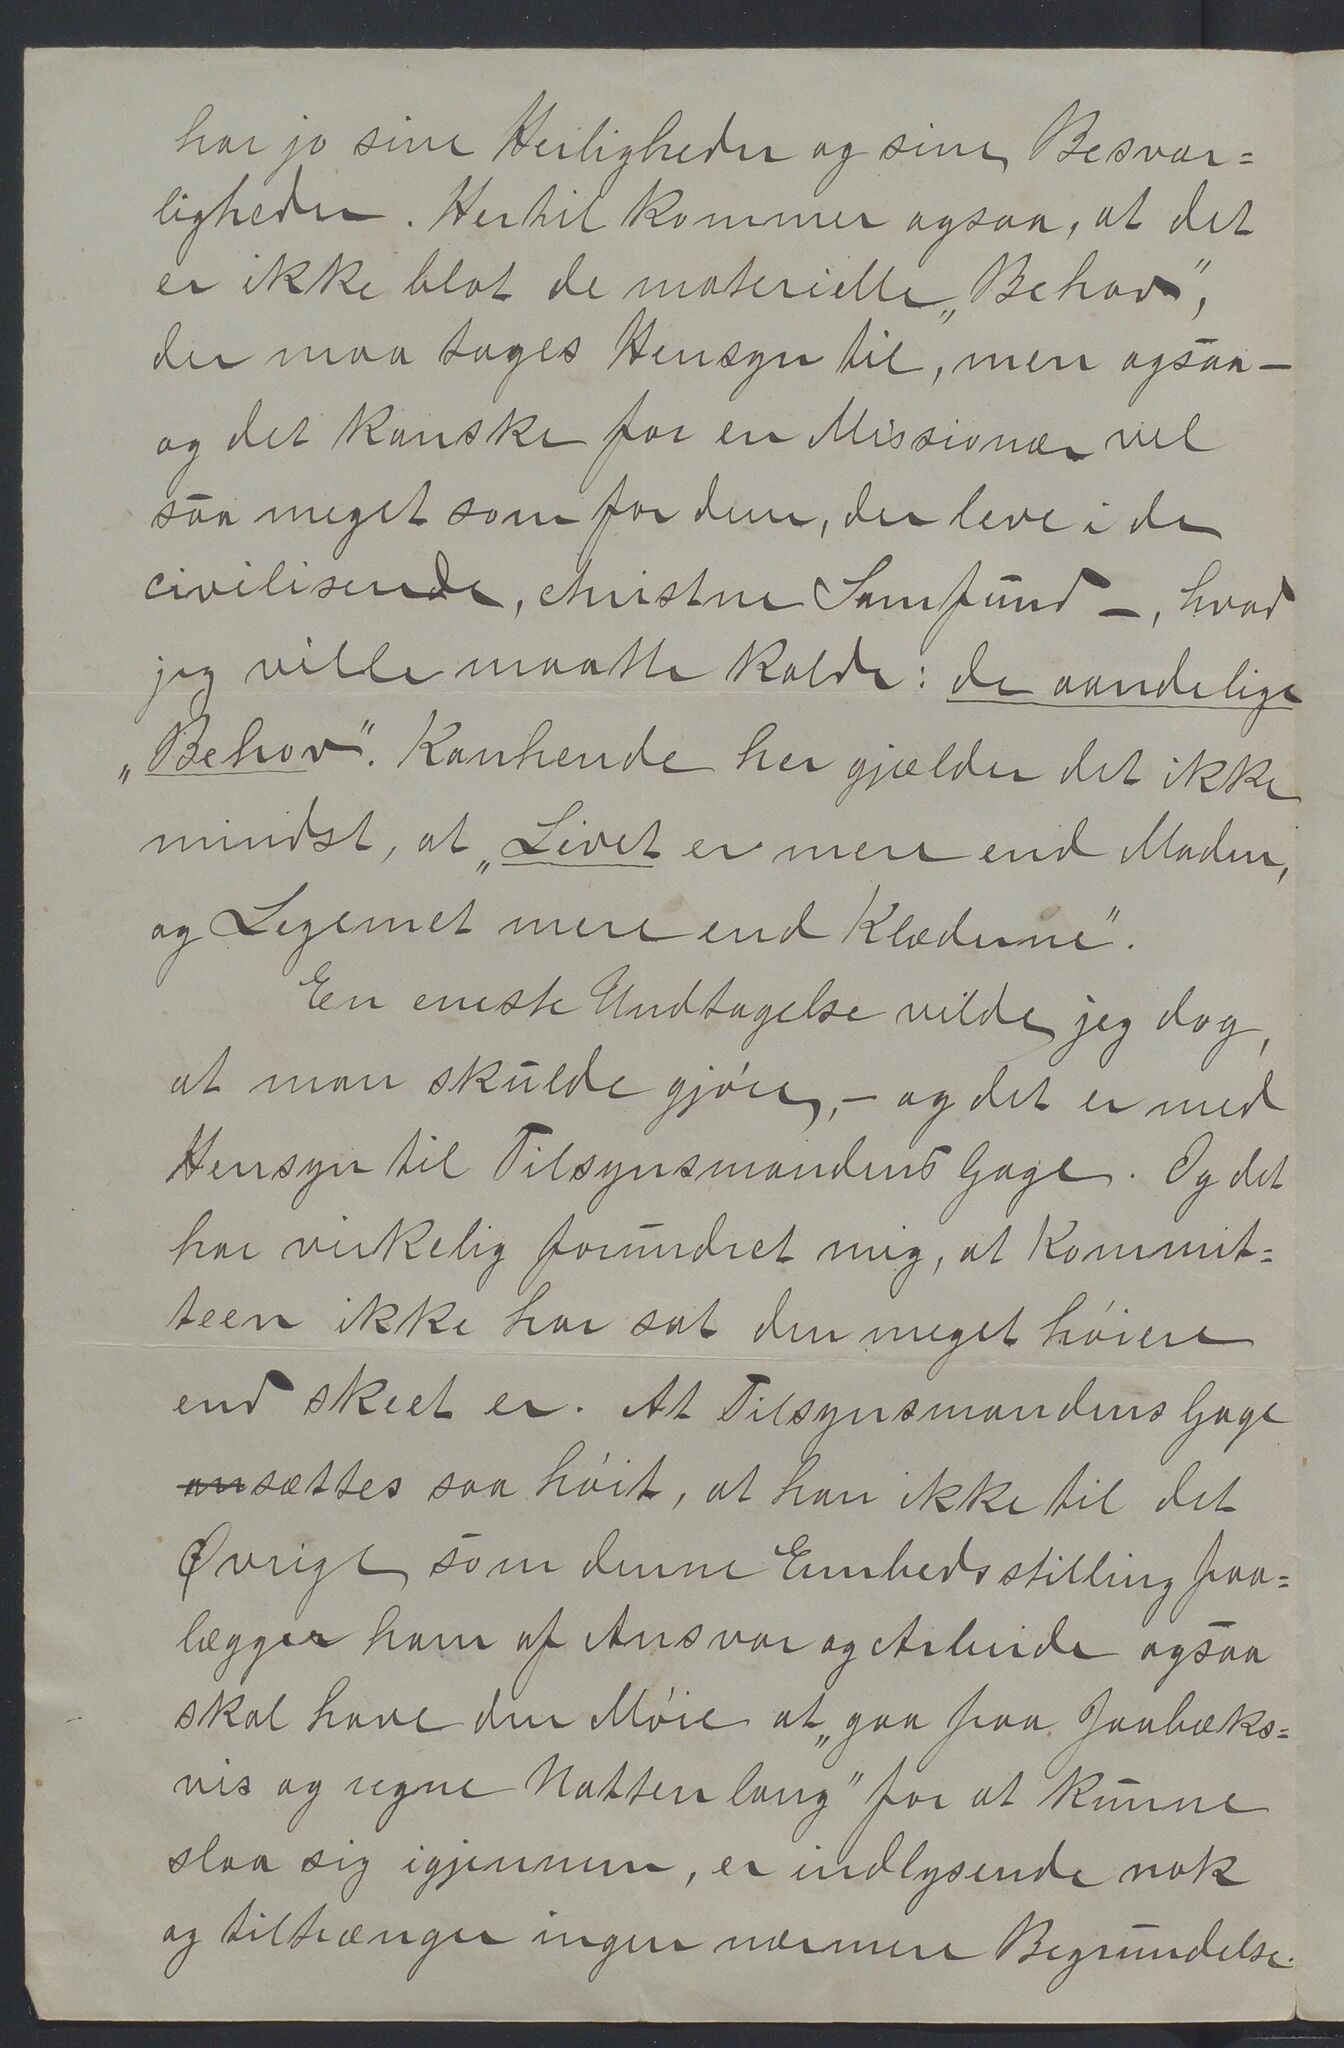 har jo sine Herligheder og sine Besvær=
ligheder. Hertil kommer ogsaa, at det
er ikke blot de materielle „Behov”,
der maa tages Hensyn til, men ogsaa —
og det kanske for en Missionær vel
saa meget som for dem, der leve i de
civiliserede, christne Samfund —, hvad
jeg ville maatte kalde: de aandelige
„Behov”. Kanhende her gjælder det ikke
mindst, at „Livet er mere end Maden,
og Legemet mere end Klæderne”.
En eneste Undtagelse vilde jeg dog,
at man skulde gjøre, — og det er med
Hensyn til Tilsynsmandens Gage. Og det
har virkelig forundret mig, at Kommit=
teen ikke har sat den meget høiere
end skeet er. At Tilsynsmandens Gage
ansættes saa høit, at han ikke til det
Øvrige som denne Embedsstilling paa=
lægger ham af Ansvar og Arbeide ogsaa
skal have den Møie at „gaa paa Jaabæks=
vis og regne Natten lang” for at kunne
slaa sig igjennem, er indlysende nok
og tiltrænger ingen nærmere Begrundelse.